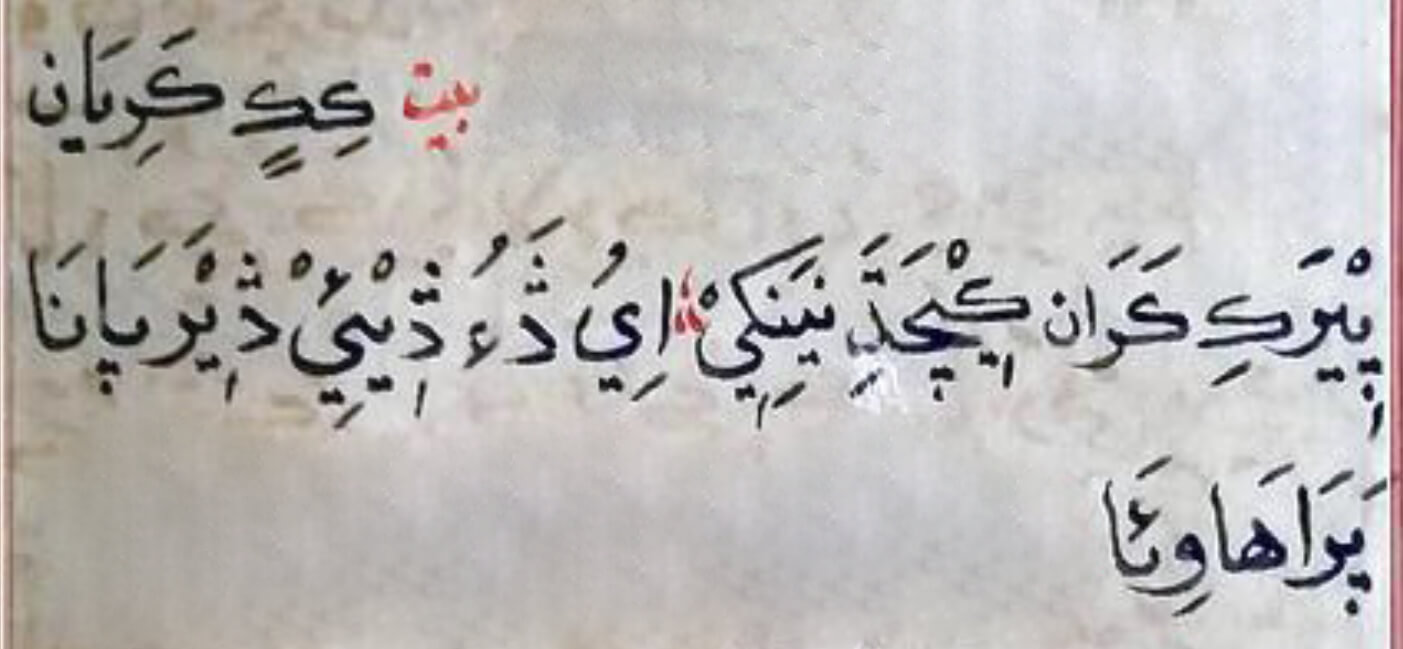 بيت كِكٍ كَرِيَان
پِيْرَكِ كَرَان كِيْچَڏِّ نَيَنِكِيْ اِيُ ڏَّءُ ڏِّيْئِيْ ڏِيْرَ پَانَا
پَرَاهَاوِئَا